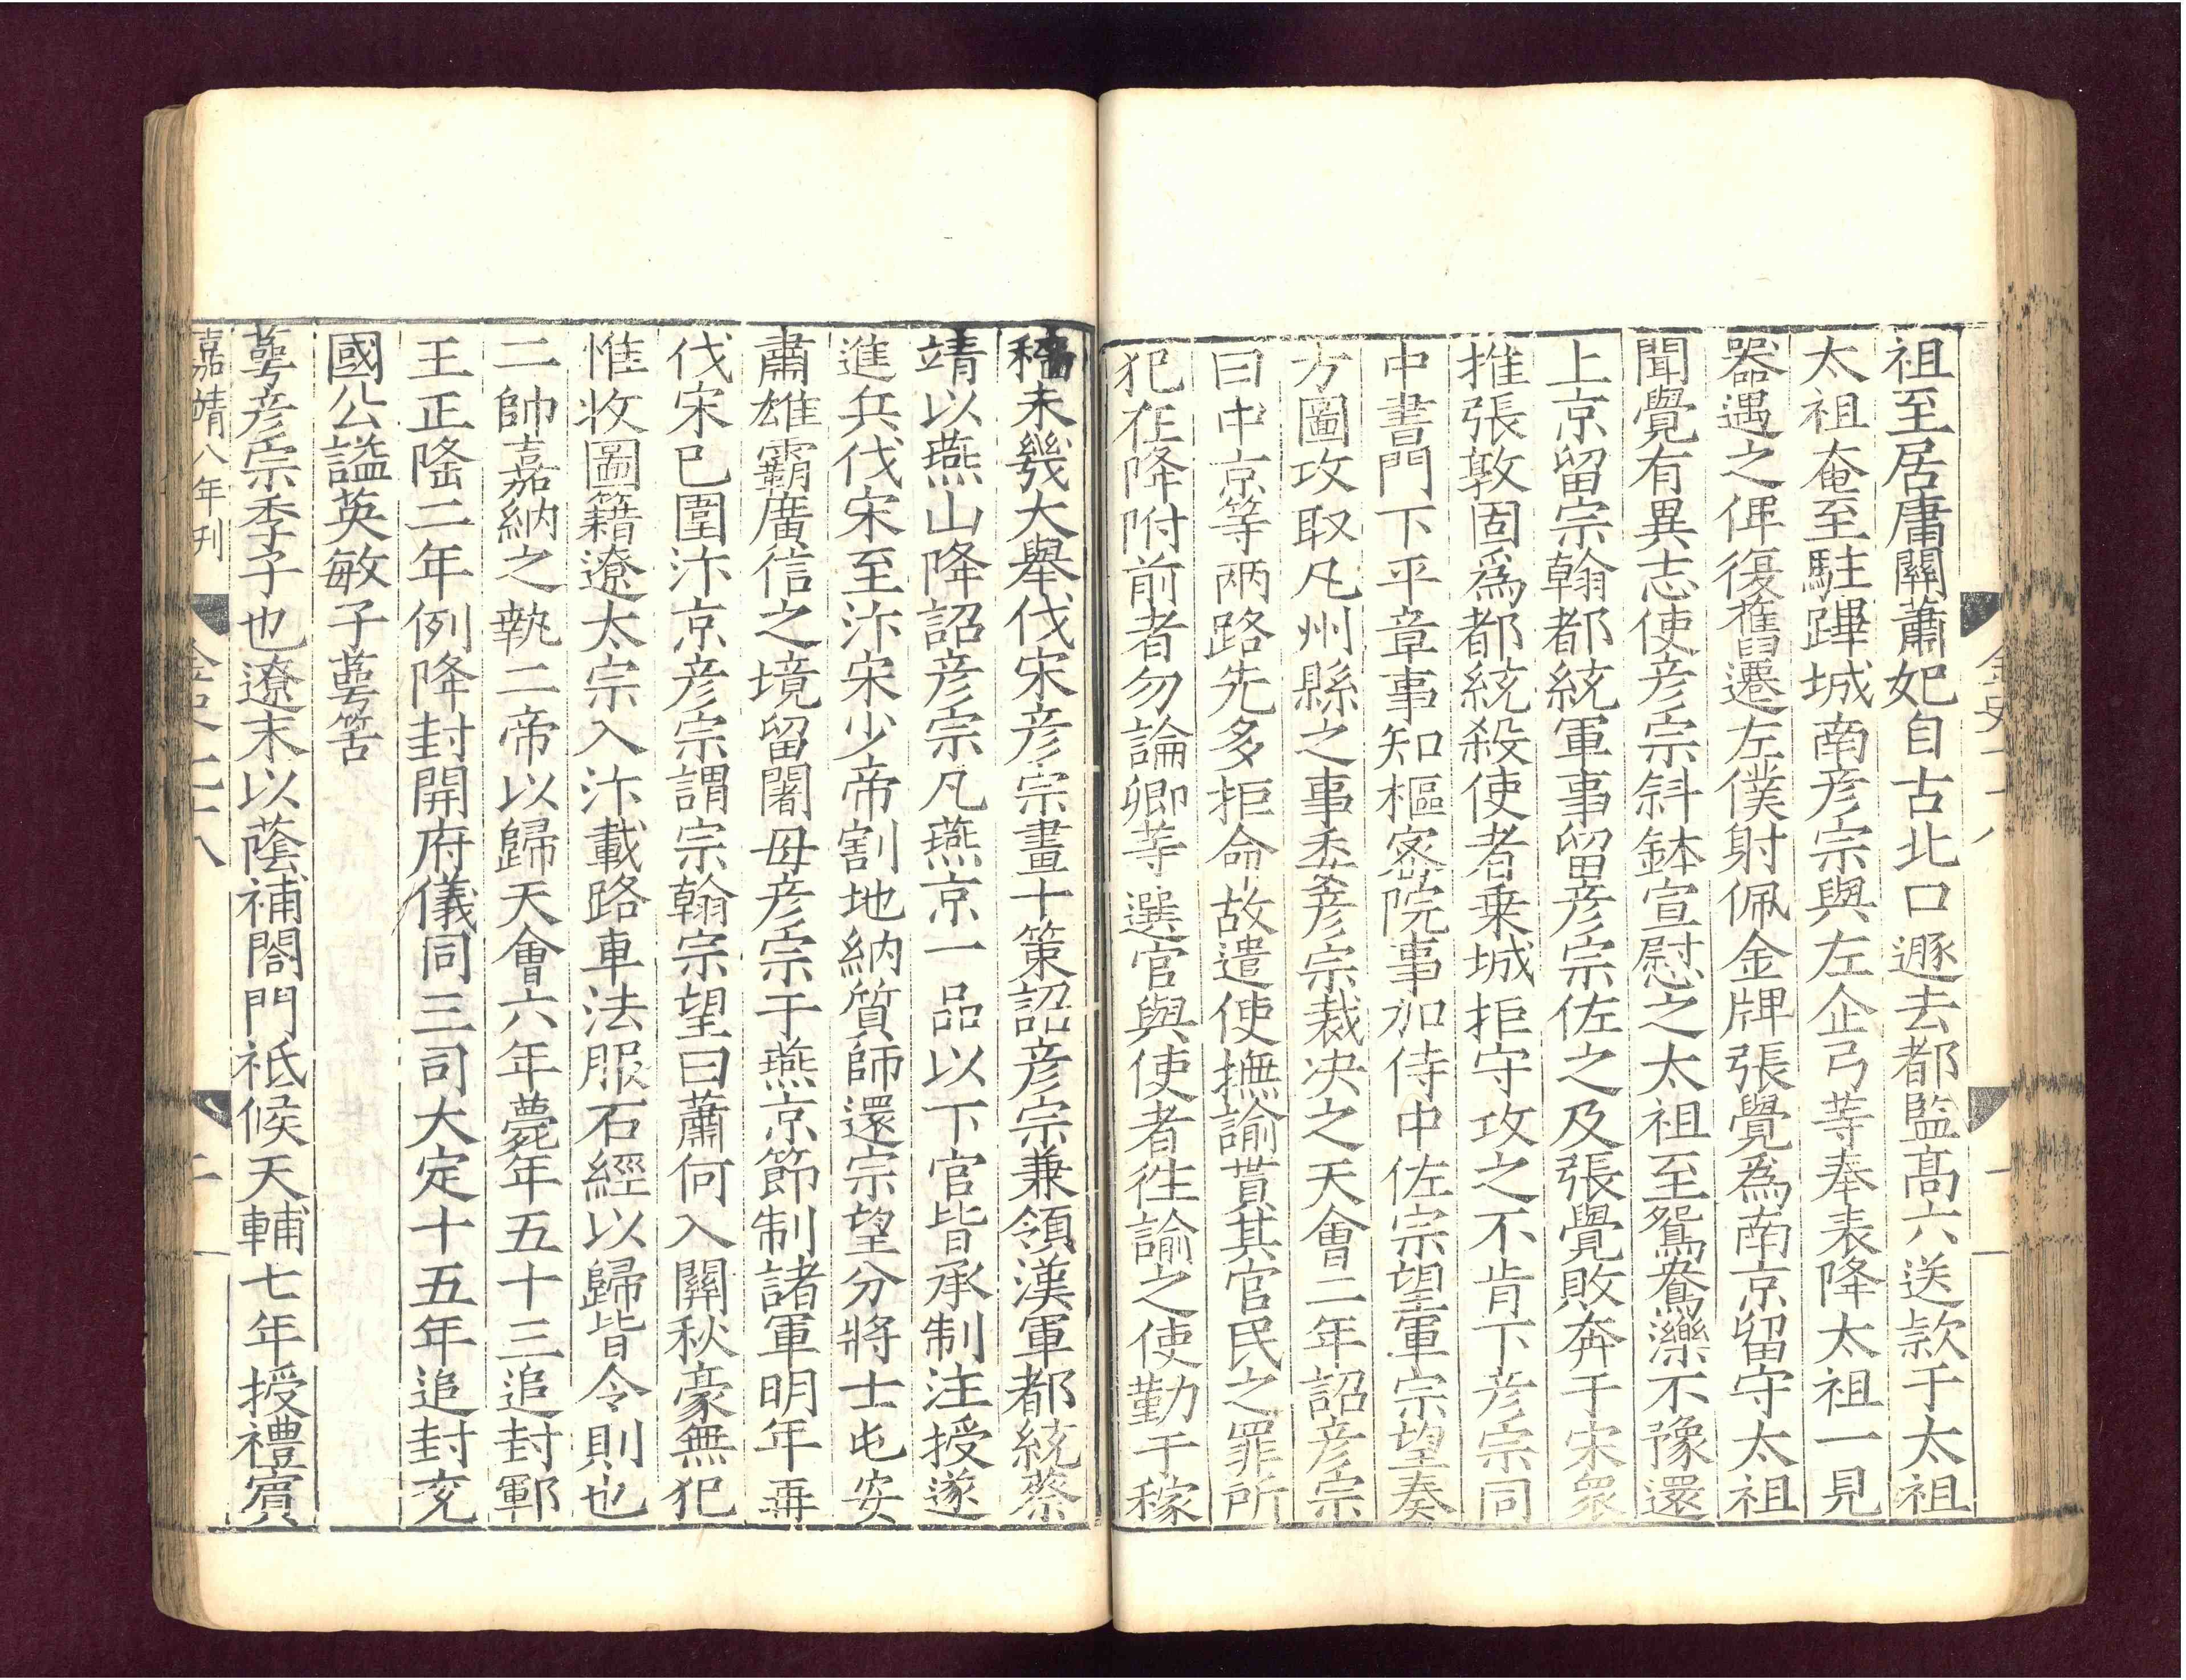 祖至居庸關蕭妃自古北口遯去都監髙六送款于太祖
太祖奄至駐蹕城南彦宗與左企弓䓁奉表降太祖一見
器遇之俾復舊遷左僕射佩金牌張覺為南京留守太祖
聞覺有異志使彦宗斜鉢宣慰之太祖至鴛鴦濼不豫還
上京留宗翰都統軍事留彦宗佐之及張覺敗奔于宋衆
推張敦固爲都統殺使者乗城拒守攻之不肯下彦宗同
中書門下平章事知樞密院事加侍中佐宗望軍宗望奏
方圖攻取凡州縣之事委彦宗裁决之天會二年詔彦宗
曰中京等兩路先多拒命故遣使撫諭貰其官民之罪所
犯在降附前者勿論卿䓁選官與使者徃諭之使勤于稼
穡未幾大舉伐宋彦宗畫十策詔彦宗兼領漢軍都統蔡
靖以燕山降詔彦宗凡燕京一品以下官皆承制注授遂
進兵伐宋至汴宋少帝割地納質師還宗望分將士屯安
肅雄霸廣信之境留闍母彦宗于燕京節制諸軍明年再
伐宋已圍汴京彦宗謂宗翰宗望曰蕭何入關秋豪無犯
惟收圖籍遼太宗入汴載路車法服石經以歸皆令則也
二帥嘉納之執二帝以歸天會六年薨年五十三追封鄆
王正隆二年例降封開府儀同三司大定十五年追封兖
國公謚英敏子蕚筈
蕚彦宗季子也遼末以蔭補閤門祗候天輔七年授禮賓
嘉靖八年刋
金史七十八
二